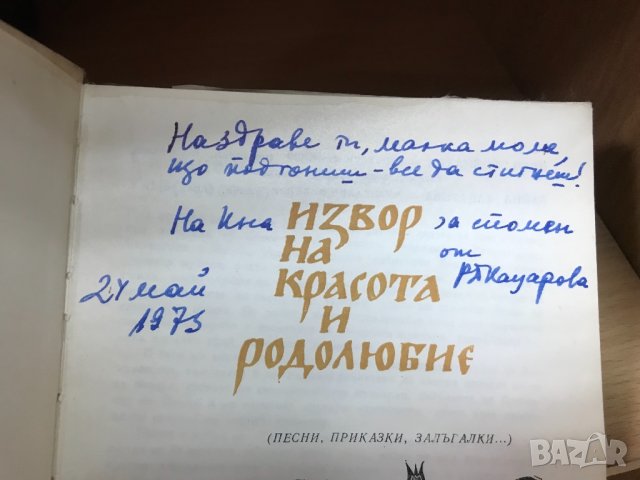 Наздраве ти, малка моме,
що подгониш - все да стигнеш!
На Ина
ИЗВОР
за спомен
НА
от
КРАСОТА
24 май
1973
И
РОДОЛЮБИЕ
(ПЕСНИ, ПРИКАЗКИ, ЗАЛЪГАЛКИ...)
BAZAR